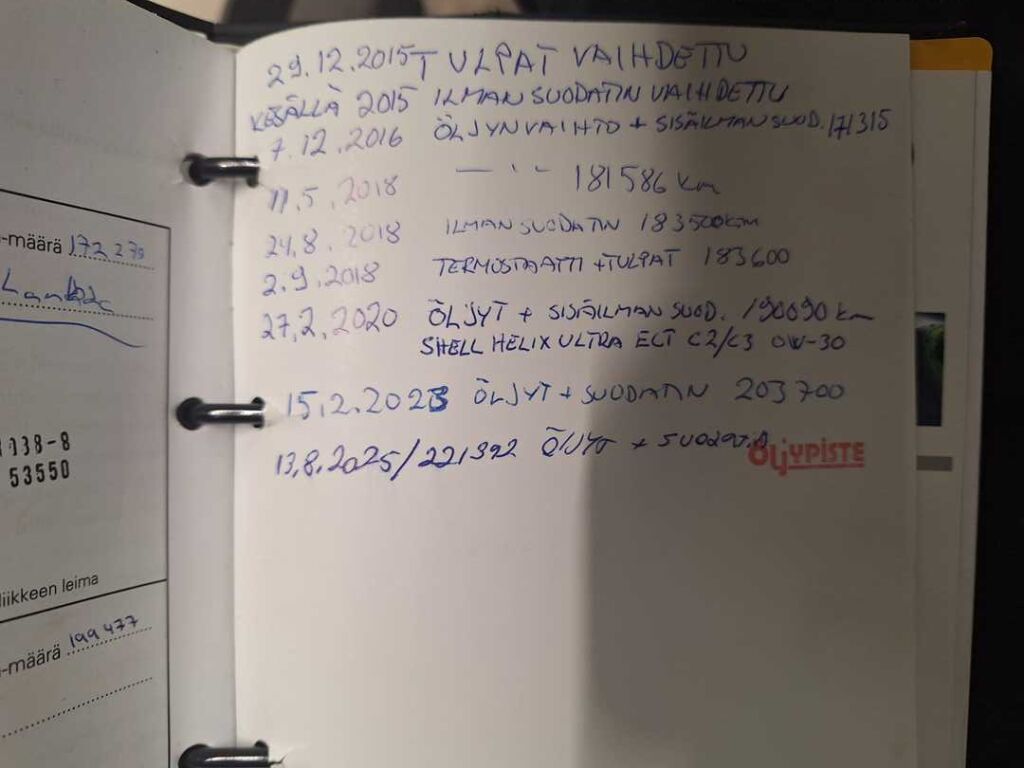 -määrä 172 279
1938-8
53550
liikkeen leima
-määrä 199 477
29.12.2015 TULPAT VAIHDETTU
KESÄLLÄ 2015 ILMANSUODATIN VAIHDETTU
7.12.2016 ÖLJYNVAIHTO + SISÄILMANSUOD. 171315
11.5.2018 — ʺ — 181586 km
24.8.2018 ILMANSUODATIN 183500km
2.9.2018 TERMOSTAATTI + TULPAT 183600
27.2.2020 ÖLJYT + SISÄILMANSUOD. 190090 km
SHELL HELIX ULTRA ECT C2/C3 0W-30
15.2.2023 ÖLJYT + SUODATIN 203700
13.8.2025/221392 ÖLJYT + SUODATIN
ÖLJYPISTE